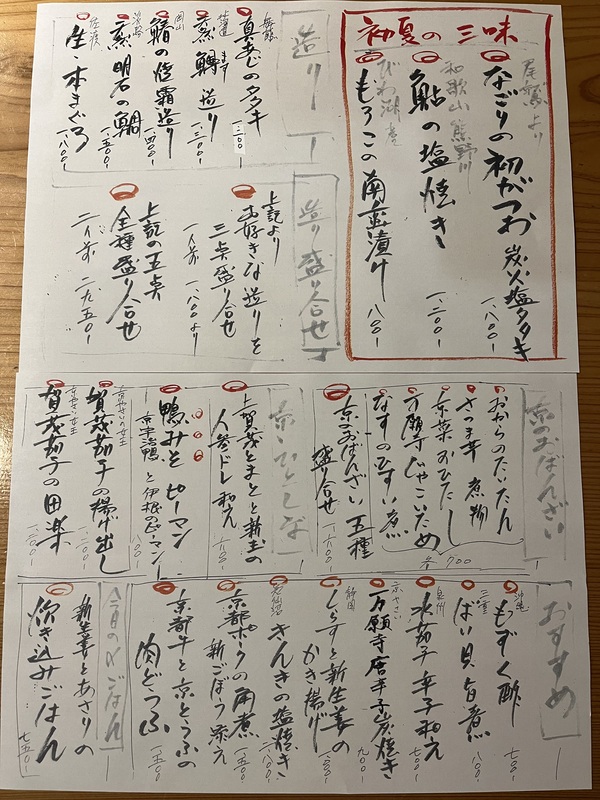 初夏の三味
尾鷲より
なごりの初がつお 炭火塩タタキ
一、八〇〇-
和歌山 熊野川
鮎の塩焼き
一、二〇〇-
びわ湖産
もろこの南蛮漬け
八〇〇-
造り
舞鶴
真あじのタタキ
一、二〇〇-
北海道
造り
一、三〇〇-
岡山
鰆の焼霜造り
一、四〇〇-
淡路
明石の鯛
一、五〇〇-
佐渡
生・本まぐろ
一、八〇〇-
造り盛り合せ
上記より
お好きな造りを
三点盛り合せ
一人前 一、八〇〇より
上記の五点
全種盛り合せ
二人前 二、九五〇-
京のおばんざい
おからのたいたん
さつま芋 煮物
京菜おひたし
万願寺じゃこいため
なすのひすい煮
各700
京のおばんざい 五種
盛り合せ
一、六〇〇-
京・ひとしな
上賀茂とまとと新玉の
人参ドレ和え
鴨みそピーマン
京都鴨と伊根のピーマン
八〇〇-
京やさいの女王
賀茂茄子の揚げ出し
一、二〇〇-
京やさいの女王
賀茂茄子の田楽
一、二〇〇-
おすすめ
沖縄
もずく酢
七〇〇-
三重
ばい貝旨煮
八〇〇-
泉州
水茄子辛子和え
七〇〇-
京やさい
万願寺唐辛子炭焼き
九〇〇-
静岡
しらすと新生姜の
かき揚げ
気仙沼
きんきの塩焼き
二、八〇〇-
京都ポークの角煮
新ごぼう添え
一、五〇〇-
京都牛と京とうふの
肉どうふ
一、五〇〇-
今月の〆ごはん
新生姜とあさりの
炊き込みごはん
七五〇-